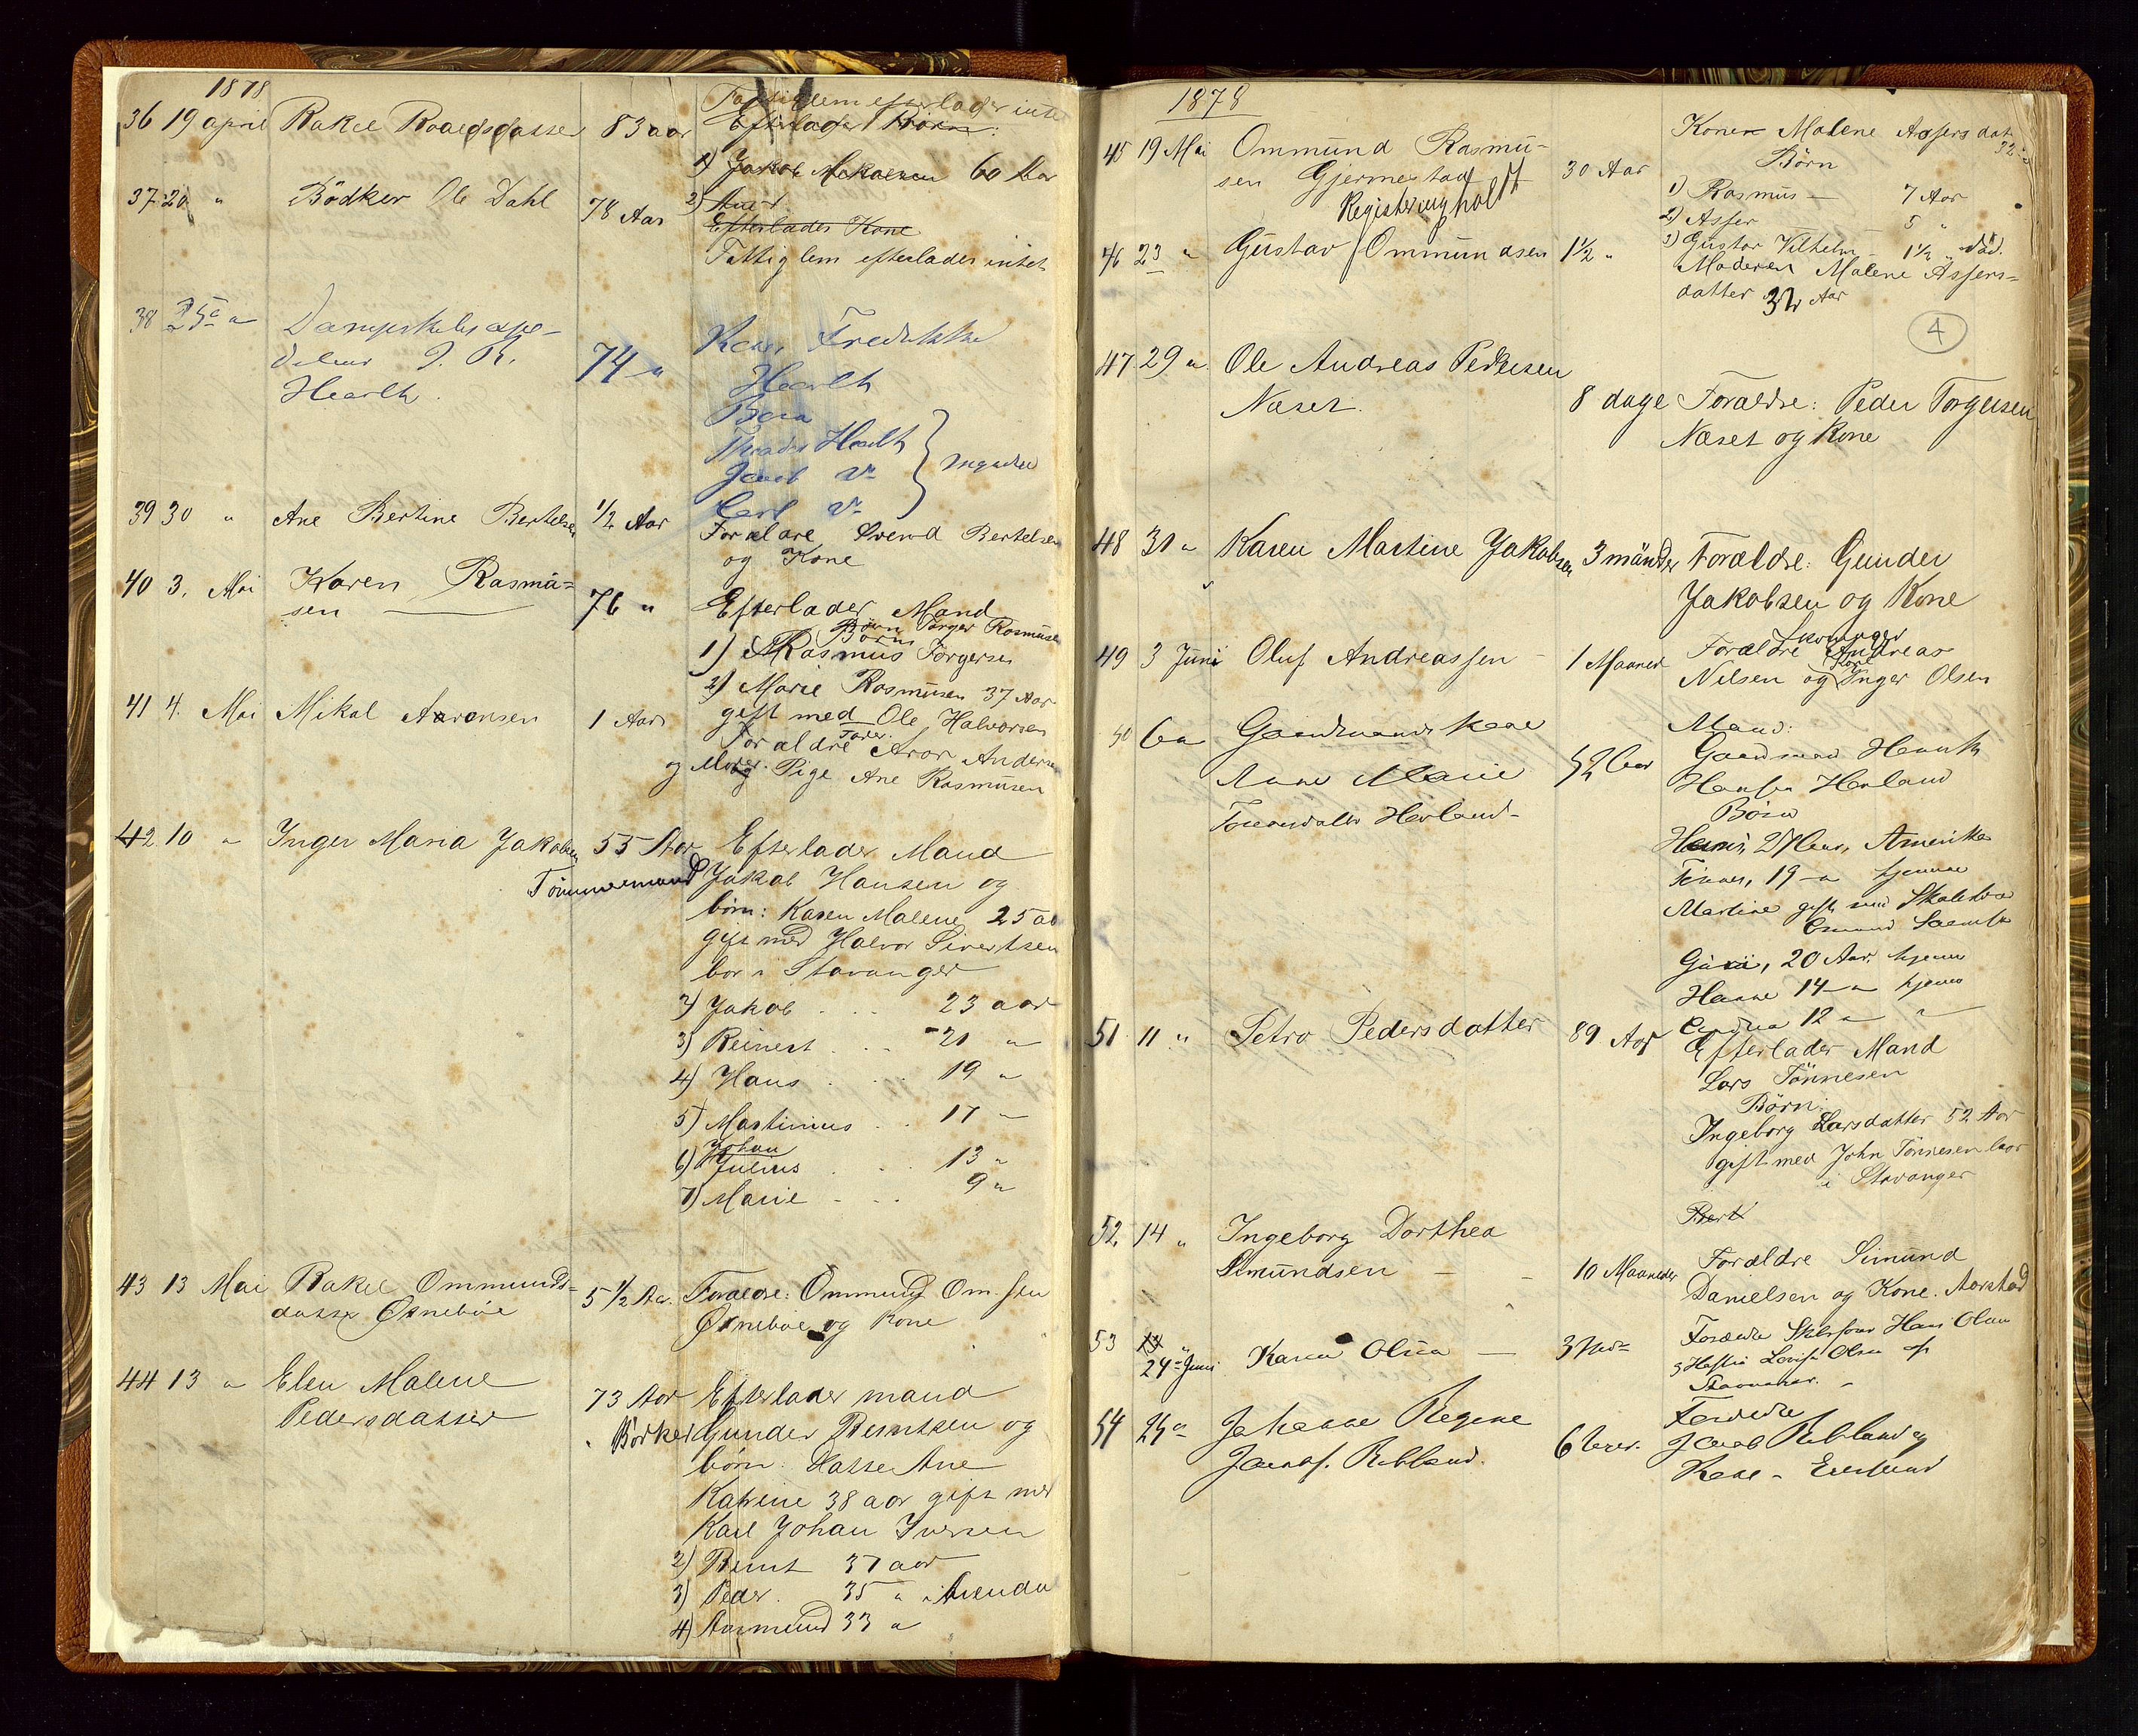 1878
36 19 april Rakel Roaldsdatter 83 aar Fattiglem efterlader intet
Efterlader Börn:
1) Jakob Mikalsen 60 Aar
2) Ane
37 20 " Bödker Ole Dahl 78 Aar
Efterlader Kone
Fattiglem efterlader intet
38 25 "
74 "
Kone Fredrikke
Börn
Jacob
Carl
Myndige
39 30 " Ane Bertine Bertelsen 1/2 Aar
Foraldre Svend Bertelsen
og Kone
40 3. Mai Karen Rasmu=
sen 76 " Efterlader Mand
Börn Torger Rasmusen
Börn
1) Rasmus Torgersen
2) Marie Rasmusen 37 Aar
gift med Ole Halvorsen
41 4. Mai Mikal Aaronsen 1 Aar
Foraldre Fader Aron Andersen
og Moder Pige Ane Rasmusen
42 10 " Inger Maria Jakobsen 55 Aar Efterlader Mand
Tömmermand Jakob Hansen og
börn: Karen Malene 25 aar
gift med Halvor Sivertsen
bor i Stavanger
2) Jakob . . . 23 aar
3) Reinert . . . 21 "
4) Hans . . . 19 "
5) Martinius . . 17 "
Johan
6) Julius . . . 13 "
7) Marie - . . 9 "
43 13 Mai Rakel Ommunds=
datter Ørneböe 5 1/2 Aar. Foraldre: Ommund Om.sen
Ørneböe og Kone
44 13 " Elen Malene
Pedersdatter 73 Aar Efterlader mand
Bödker Gunder Berntsen og
börn: Datter Ane
Katrine 38 aar gift med
Karl Johan Iversen
2) Bernt 37 aar
3) Peder . 35 " i Arendal
4) Aasmund 33 "
1878
45 19 Mai Ommund Rasmu-
sen Gjermestad 30 Aar
Registering holdt
Konen Malene Assersdat
32
Börn
1) Rasmus — 7 Aar
2) Asser 5 "
3) Gustav Vilhelm 1 1/2 " död.
46 23 " Gustav Ommundsen 1 1/2 "
Moderen Malene Assers=
datter 32 Aar
4
47 29 " Ole Andreas Pedersen
Næset. 8 dage Foraldre: Peder Torgersen
Næset og Kone
48 31 " Karen Martine Jakobsen 3 månder Foraldre: Gunder
Jakobsen og Kone
49 3 Juni Oluf Andreassen - 1 Maaned Foraldre Skomager Andreas
Nilsen og Kone Inger Olsen
50 6 " Gaardmandskone
Anne Marie
Herland 52 Aar
Mand:
Gaardmand Henrik
Hansen Herland
Börn
27 Aar, Amerika
19 " hjemme
Martine gift med
20 Aar. hjemme
Hanne 14 " hjemme
12 " "
51 11 " Petro Pedersdatter 89 Aar Efterlader Mand
Lars Tönnesen
Börn:
Ingeborg Larsdatter 52 Aar
gift med John Tönnesen bor
i Stavanger
Bert
52. 14 " Ingeborg Dorthea
Simundsen - - 10 Maaneder Foraldre Simund
Danielsen og Kone. Aarstad
53 14
24 " Juni Karen Olsen — 3
Foraldre Hans Olsen
Olsen af
Stavanger.
54 25 " Johanne Regine
Jacobs. Rebland. 6
Foraldre
Jacob Rebland og
Kone - Egersund